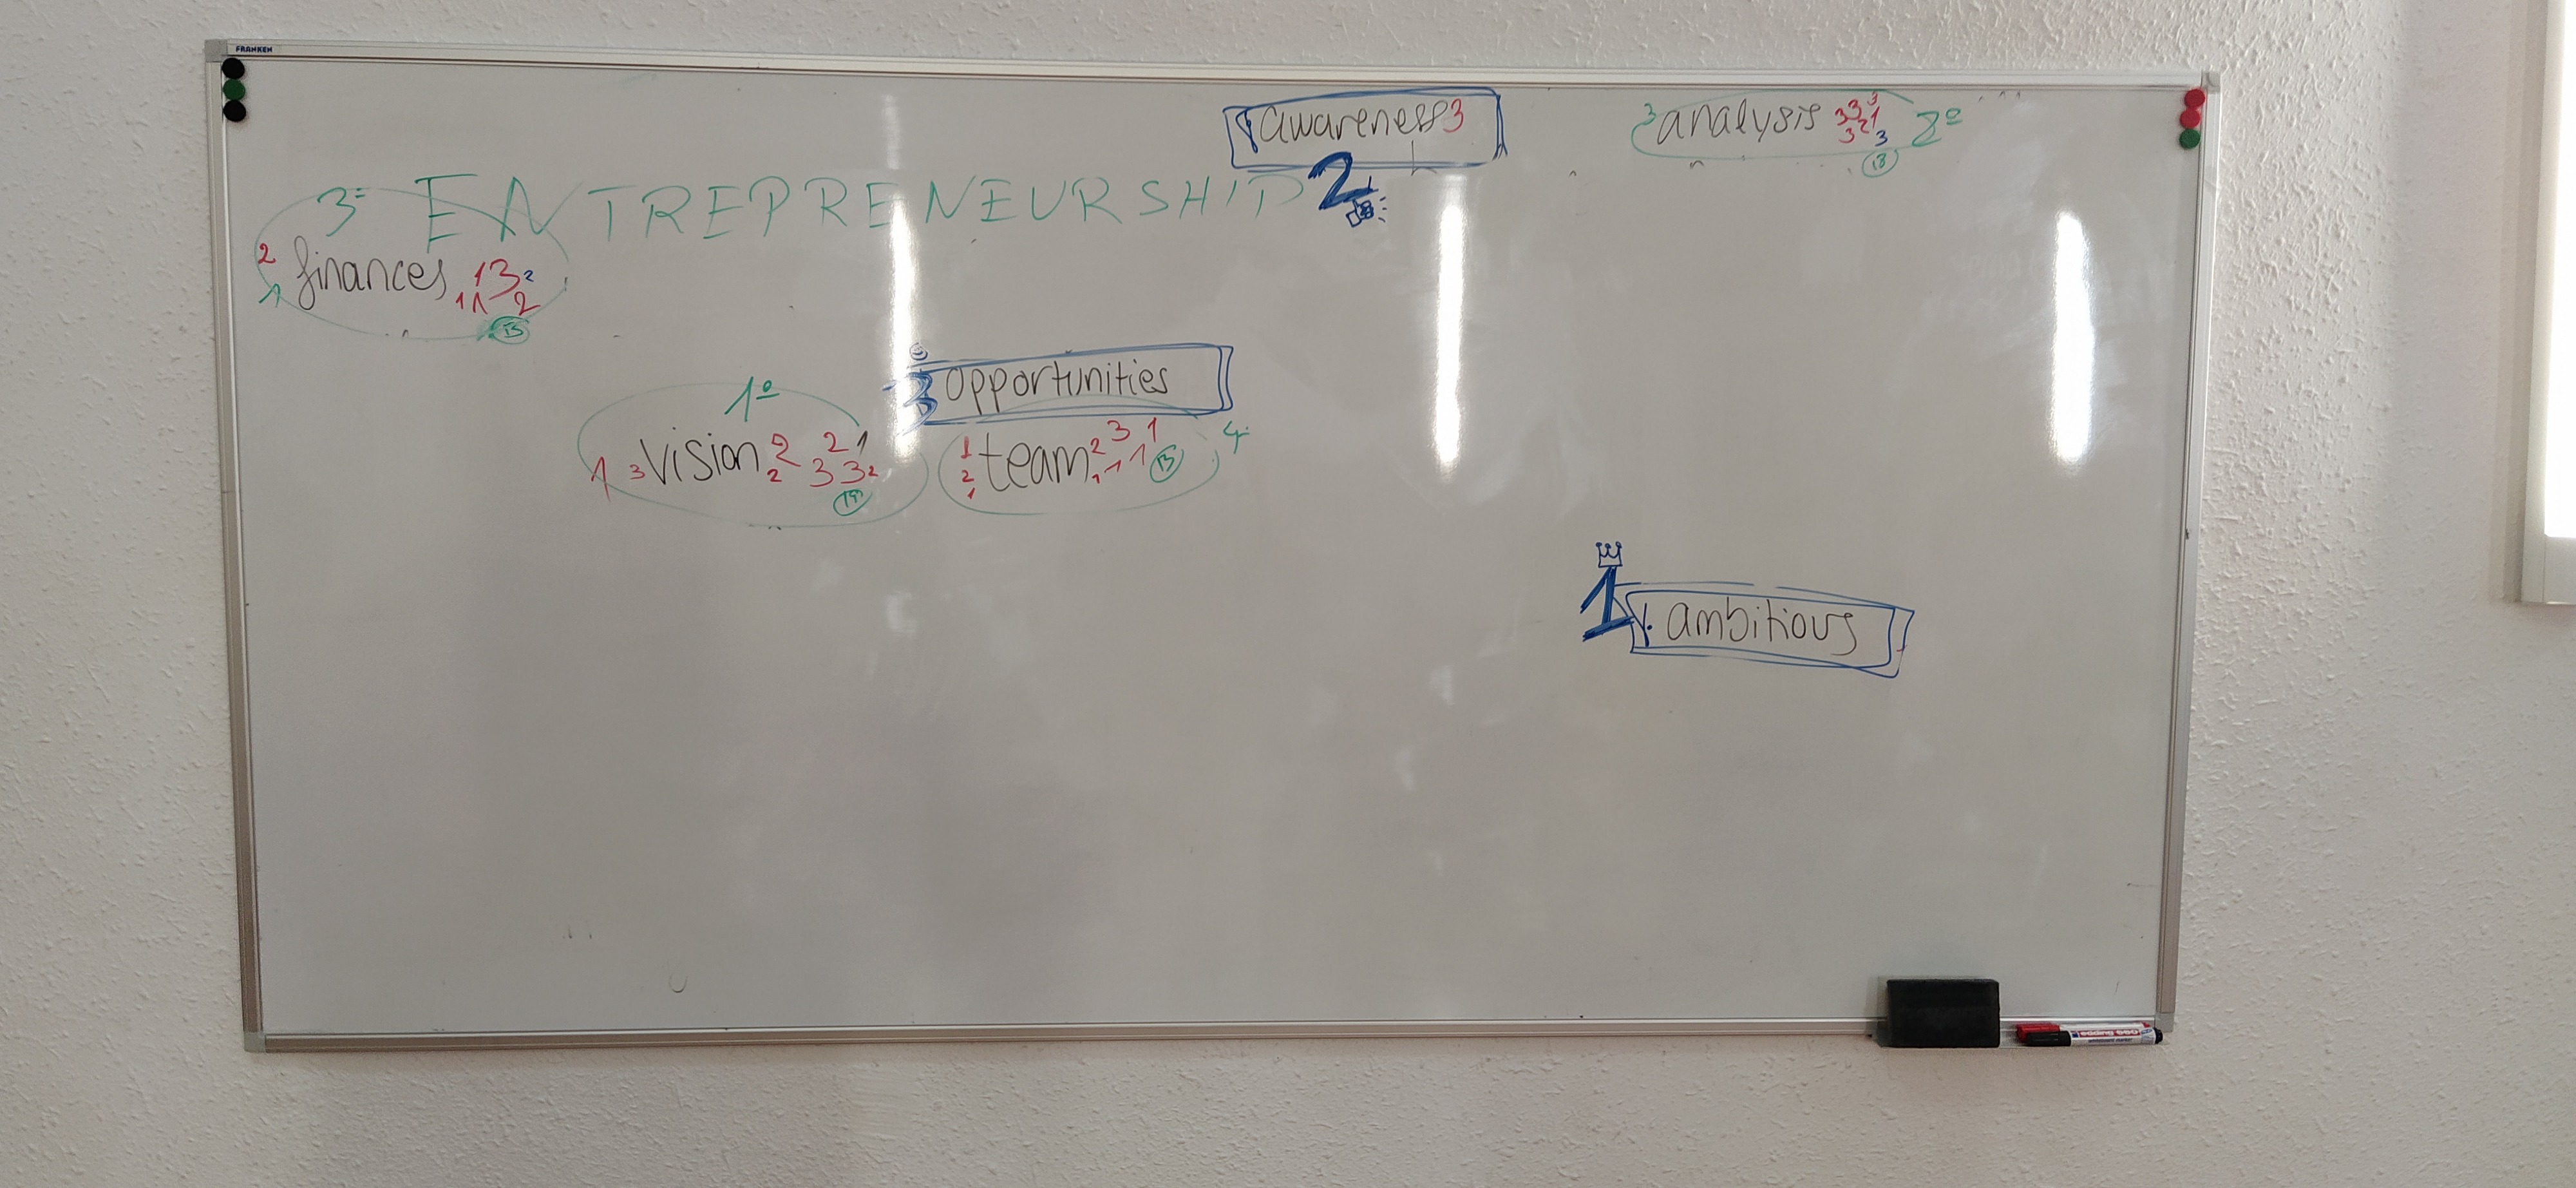 FRANKEN
awareness 3
3 analysis 3 3 3 3 2 1 3 2º
18
3º ENTREPRENEURSHIP 2
2 finances 1 3 2
1 1 1 2
15
3 opportunities
1º
1 3 vision 2 2 2 1 3 3 2
19
1 2 1 team 2 3 1 1 1 1 4
13
1
ambitious
edding 660